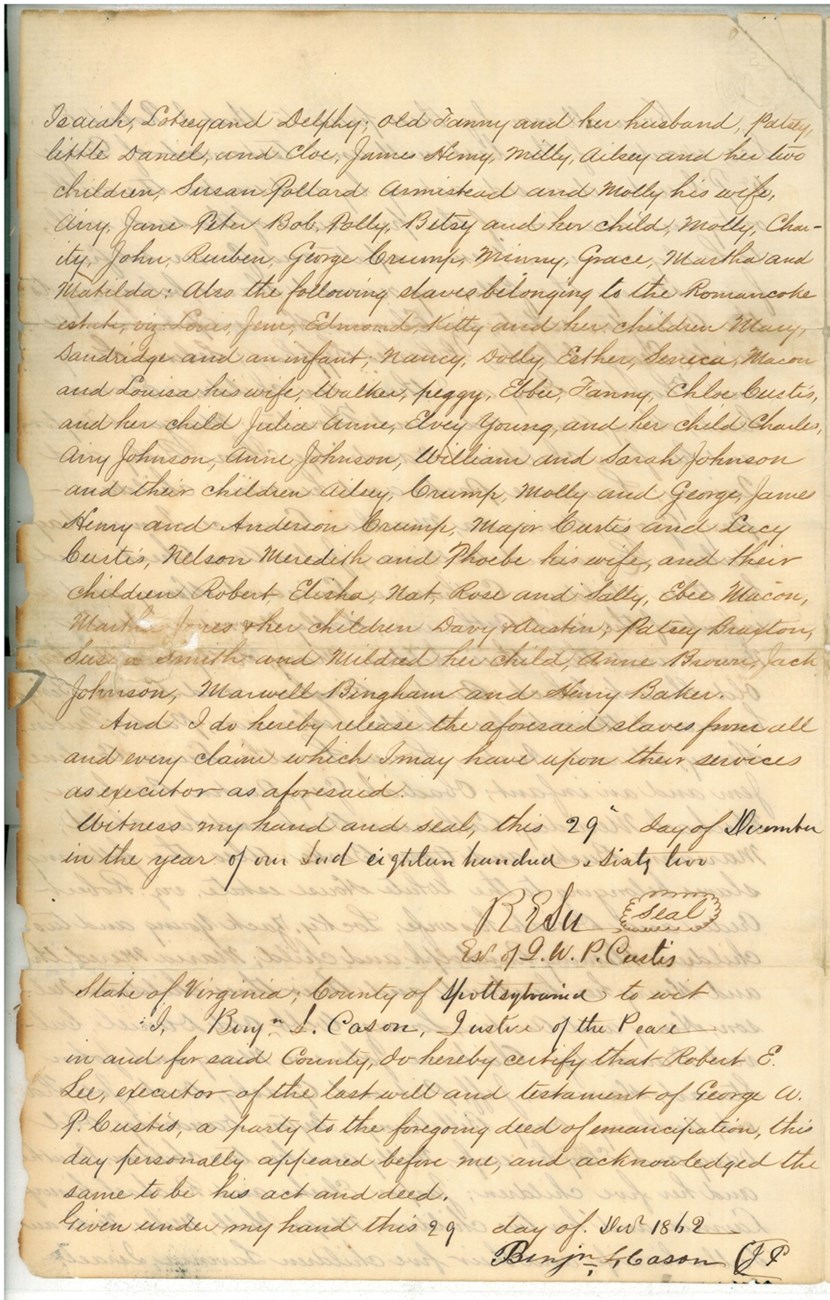 Isaiah, Lotsey and Delphy; old Fanny and her husband, Patsy,
little Daniel, and Cloe, James Henry, Milly, Ailsey and her two
children, Susan Pollard Armistead and Molly his wife,
Airy, Jane Peter Bob, Polly, Betsy and her child, Molly, Char-
ity, John, Reuben, George Crump, Minny, Grace, Martha and
Matilda: Also the following slaves belonging to the Romancoke
estate, viz: Louis, Jem, Edmond, Kitty and her children Mary,
Dandridge and an infant; Nancy, Dolly, Esther, Seneca, Macon
and Louisa his wife, Walker, peggy, Ebbee, Fanny, Chloe Custis,
and her child Julia Anne, Elvey Young, and her child Charles,
Airy Johnson, Anne Johnson, William and Sarah Johnson
and their children Ailsey, Crump, Molly and George, James
Henry and Anderson Crump, Major Custis and Lucy
Custis, Nelson Meredith and Phoebe his wife, and their
children Robert Elisha, Nat, Rose and Sally, Ebee Macon,
Martha Jones & her children Davy & Austin; Patsey Braxton,
Smith and Mildred her child, Anne Brown, Jack
Johnson, Marwell Bingham and Henry Baker.
And I do hereby release the aforesaid slaves from all
and every claim which I may have upon their services
as executor as aforesaid.
Witness my hand and seal, this 29" day of December
in the year of our Lord eighteen hundred & sixty two
R E Lee seal
Exr of G. W. P. Custis
State of Virginia, County of Spottsylvania to wit
I, Benjn S. Cason, Justice of the Peace
in and for said County, do hereby certify that Robert E.
Lee, executor of the last will and testament of George W.
P. Custis, a party to the foregoing deed of emancipation, this
day personally appeared before me, and acknowledged the
same to be his act and deed.
Given under my hand this 29 day of Decr 1862
Benjn S Cason J P